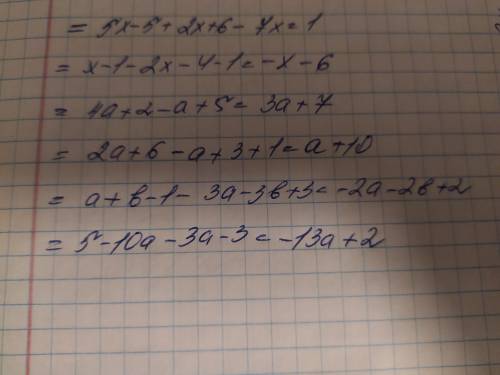 = 5x-5+2x+6-7x=1
= x-1-2x-4-1=-x-6
= 4a+2-a+5= 3a+7
= 2a+6-a+3+1=a+10
= a+b-1-3a-3b+3=-2a-2b+2
= 5-10a-3a-3=-13a+2